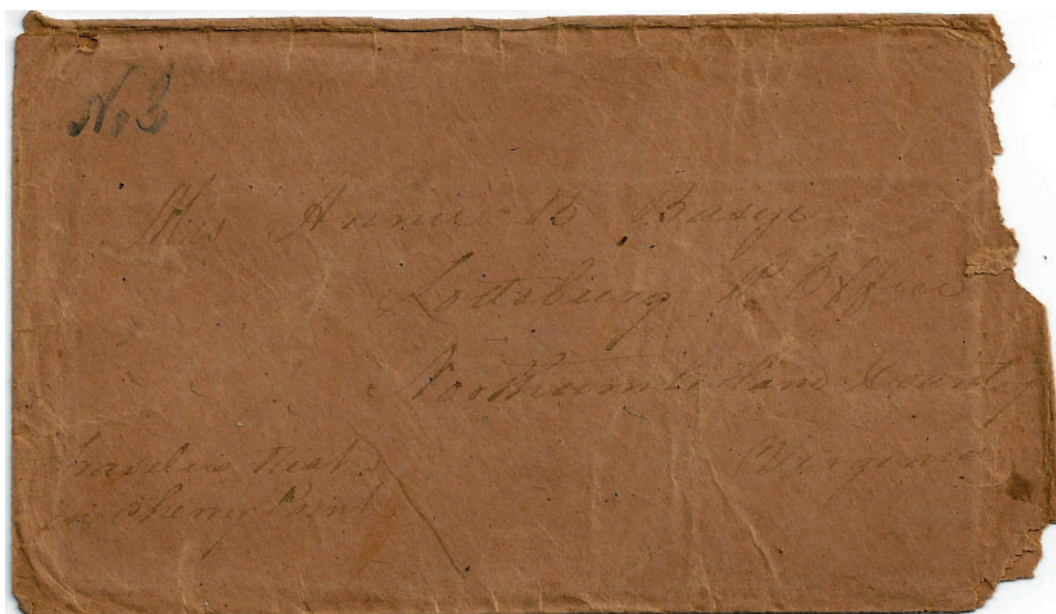 No 3
Mrs Annie B Basye
Lottsburg P. Office
Northumberland County
Virginia
Travelers Rest
in Cherry Point